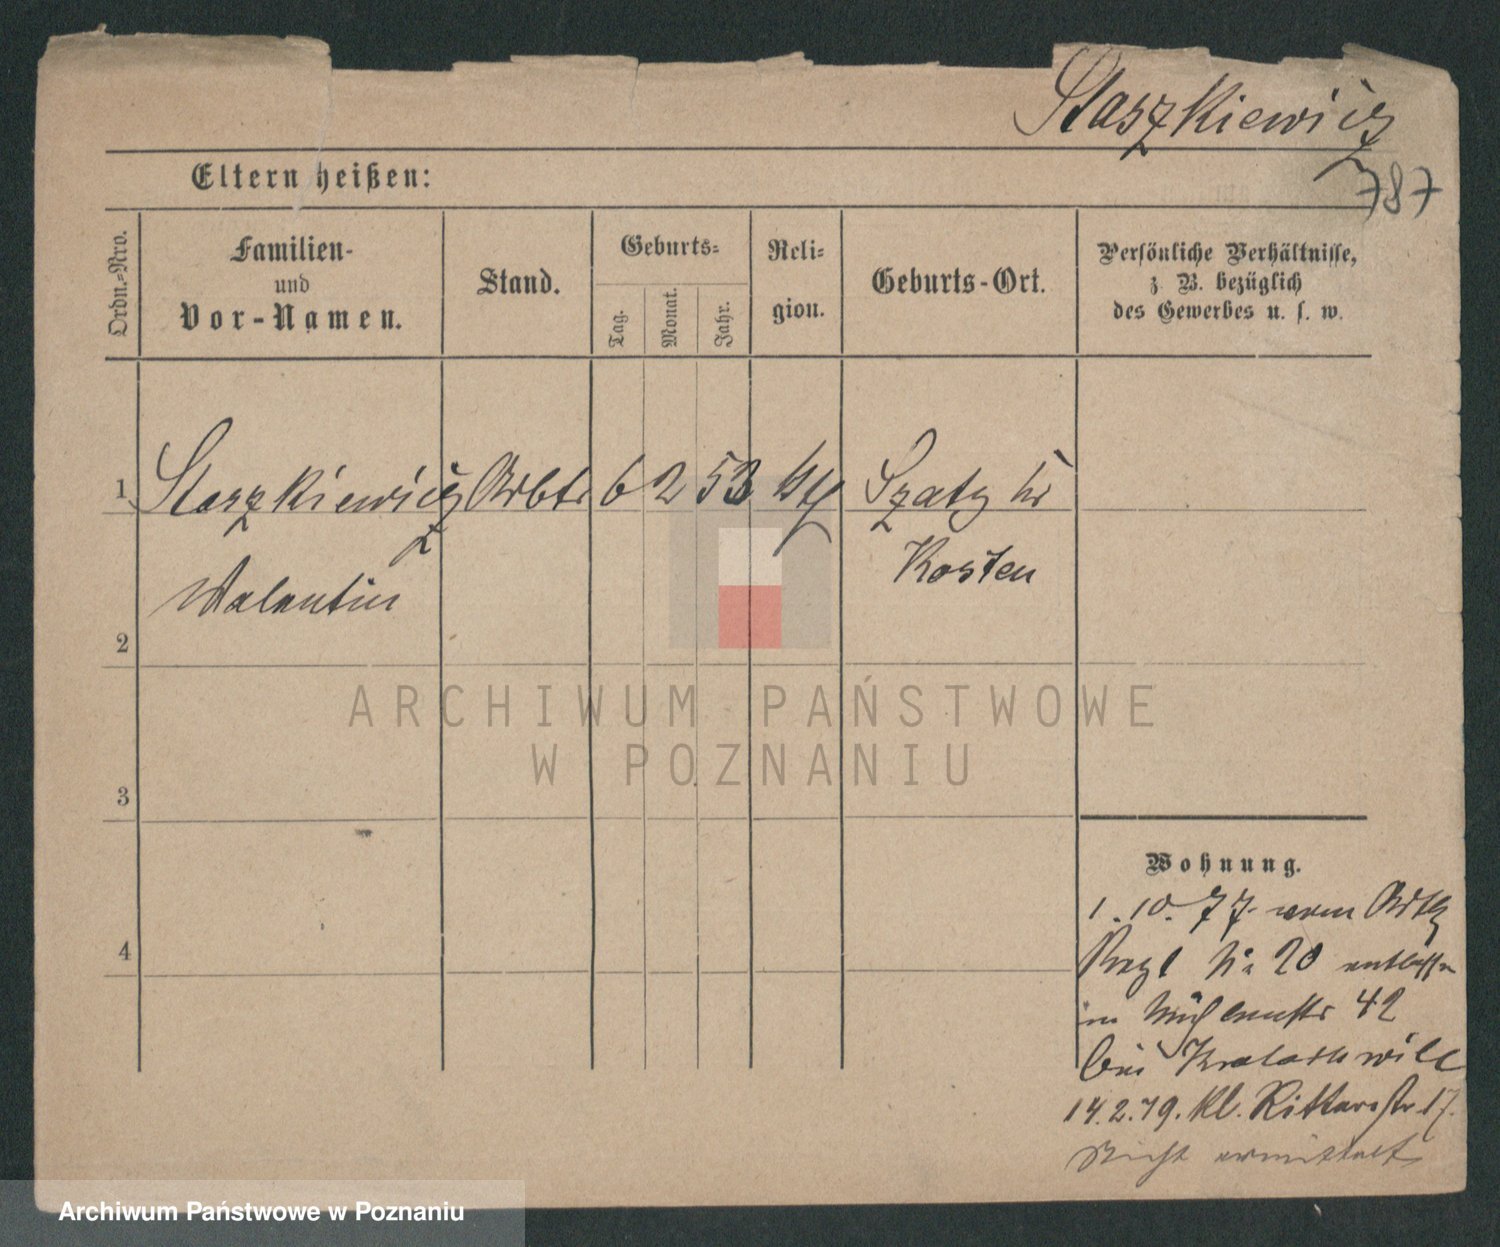 Staszkiewicz
787
Eltern heißen:
Ordn.=Nro.
Familien-
und
Vor-Namen.
Stand.
Geburts=
Tag.
Monat.
Jahr.
Reli=
gion.
Geburts-Ort.
Persönliche Verhältnisse,
z. B. bezüglich
des Gewerbes u. s. w.
1 Staszkiewicz Arbtr 6 2 53 kth Szatz Kr
Kosten
Valentin
2
3
4
ARCHIWUM PAŃSTWOWE
W POZNANIU
Wohnung.
1. 10. 77. vom
No 20 entlassen
in Mühlenstr 42
bei
14.2.79. kl. Ritterstr 17.
Nicht ermittelt
Archiwum Państwowe w Poznaniu